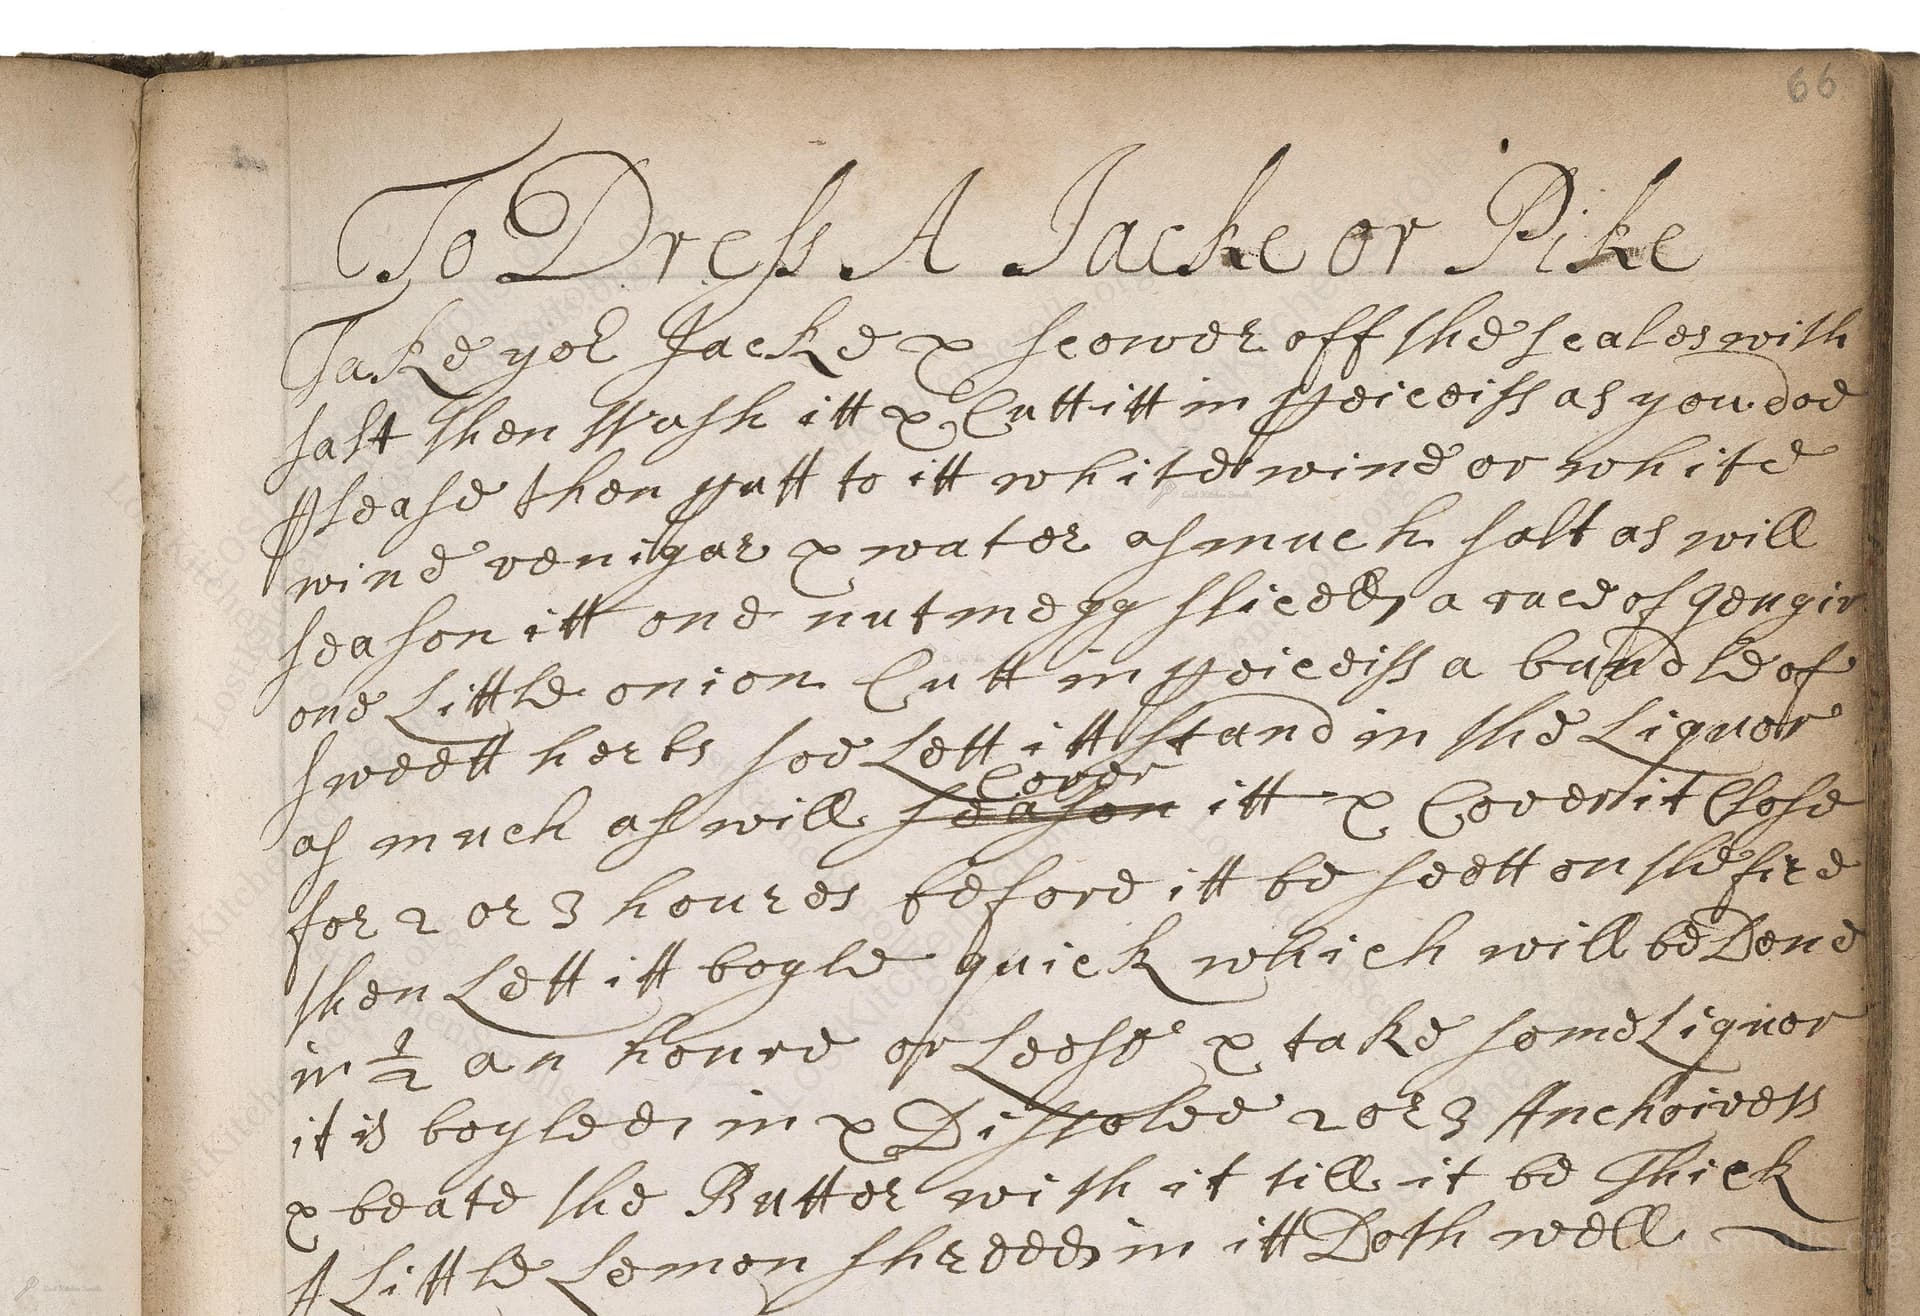 66
To Dress A Jacke or Pike
Take yor Jacke & scower off the scales with
salt then Wash itt & Cutt itt in peiceiss as you doe
please then putt to itt white wine or white
wine venigar & water as much salt as will
season itt one nutmegg sliced, a race of gengir
one Little onion Cutt in peiceiss a bundle of
sweett herbs soe Lett itt stand in the Liquor
Cover
as much as will season itt & Cover it Close
for 2 or 3 houres before itt be seett on the fire
then Lett itt boyle quick which will be Done
in 1/2 an houre or Leese & take some Liquor
it is boyled in & Dissolve 2 or 3 Anchoivess
& beate the Butter with it till it be Thick
A Little Lemon shreded in itt Doth well